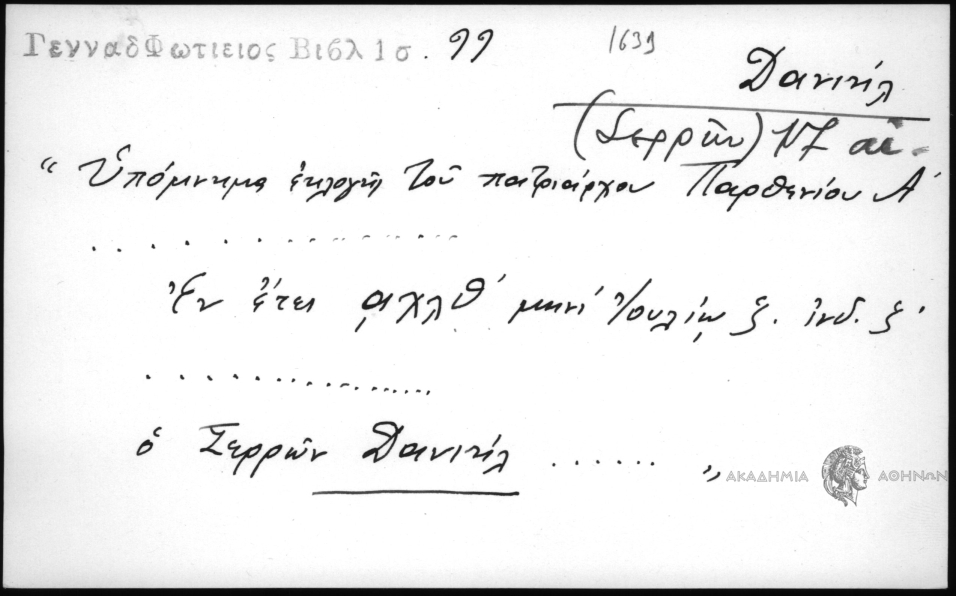 ΓενναδΦωτιειος Βιβλ 1σ. 99 1639
Δανιήλ
(Σερρῶν) 17 αἰ.
“ Ὑπόμνημα ἐκλογῆς τοῦ πατριάρχου Παρθενίου Α΄
. . . . . . . . . . . . . . . . . .
Ἐν ἔτει αχλθ΄ μηνὶ Ἰουλίῳ ξ. ἰνδ. ξ΄
. . . . . . . . . . . . . . . . . .
ὁ Σερρῶν Δανιήλ . . . . . . „
ΑΚΑΔΗΜΙΑ ΑΘΗΝΩΝ